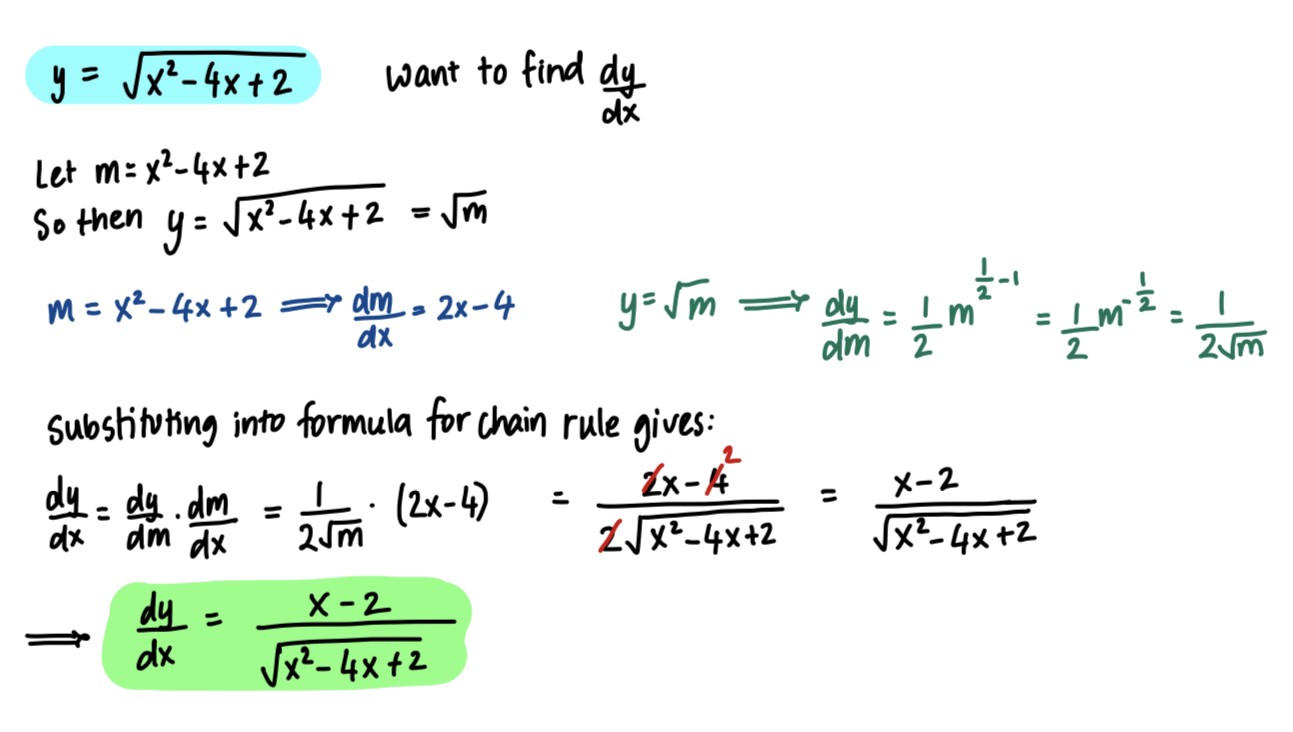 y = √(x² - 4x + 2) want to find dy/dx
Let m = x² - 4x + 2
So then y = √(x² - 4x + 2) = √m
m = x² - 4x + 2 ⟹ dm/dx = 2x - 4 y = √m ⟹ dy/dm = 1/2 m^(1/2 - 1) = 1/2 m^(-1/2) = 1/(2√m)
Substituting into formula for chain rule gives:
dy/dx = dy/dm · dm/dx = 1/(2√m) · (2x - 4) = (2x - 4 2)/(2√(x² - 4x + 2)) = (x - 2)/√(x² - 4x + 2)
⟹ dy/dx = (x - 2)/√(x² - 4x + 2)